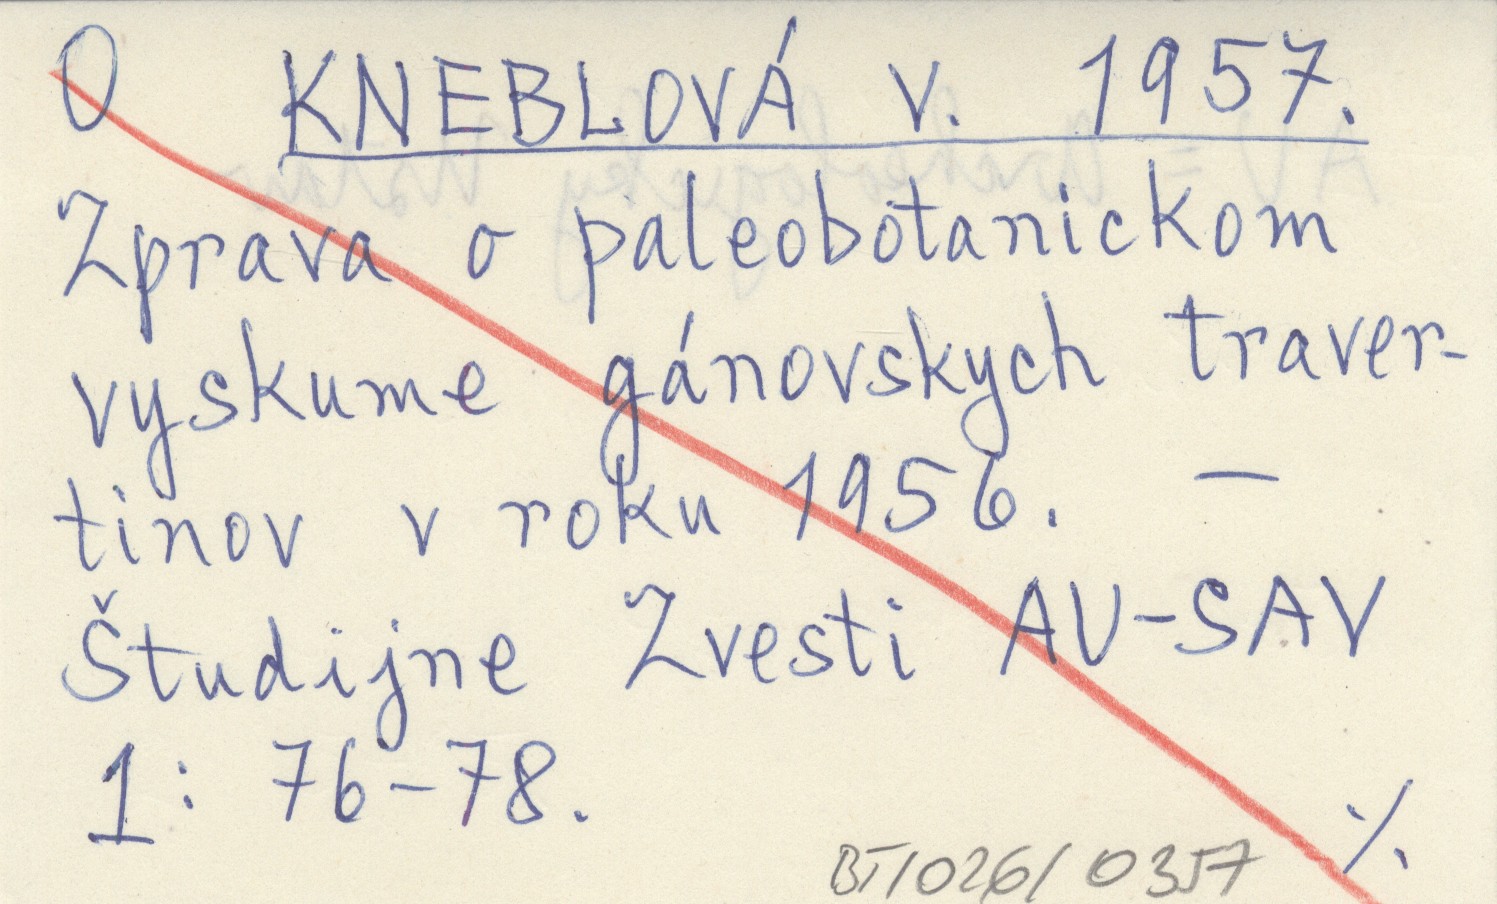 O KNEBLOVÁ V. 1957.
Zprava o paleobotanickom
vyskume gánovskych traver-
tinov v roku 1956. —
Študijne Zvesti AU-SAV
1: 76-78.
./.
BT/026/0357